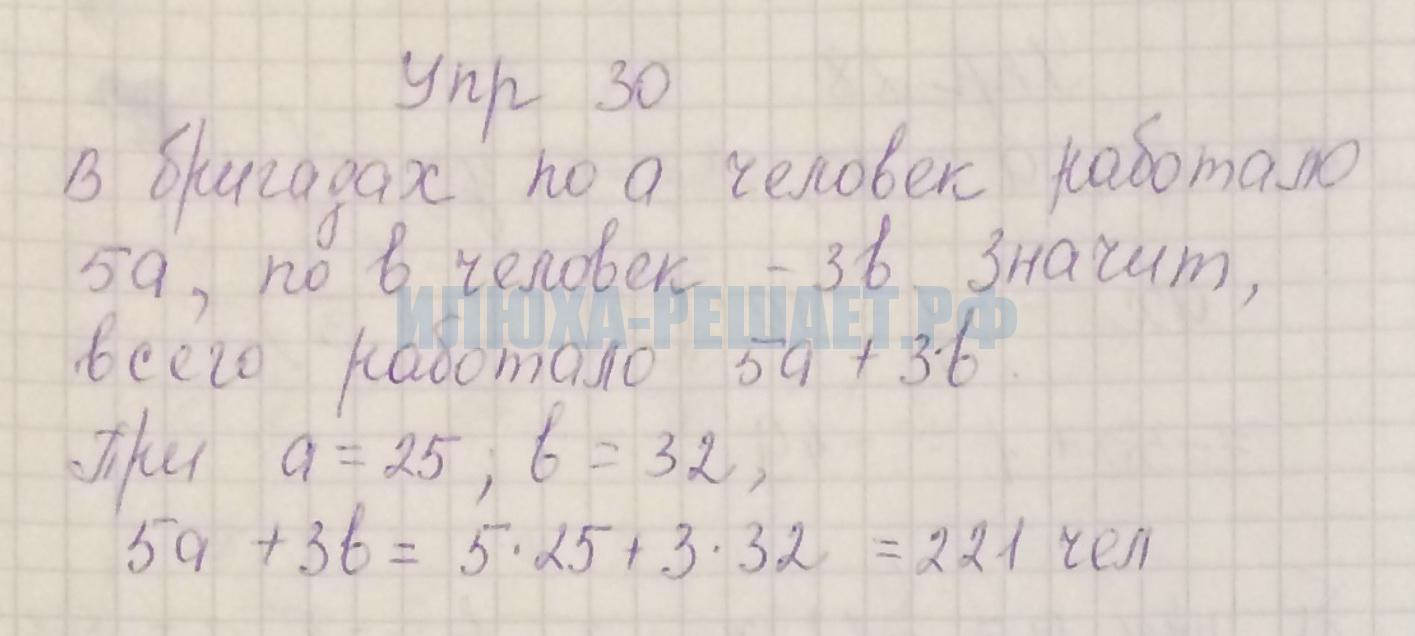 Упр 30
В бригадах по а человек работало
5а, по в человек - 3в. Значит,
ИЛЮХА-РЕШАЕТ.РФ
всего работало 5а + 3·в.
При а = 25, в = 32,
5а + 3в = 5·25 + 3·32 = 221 чел